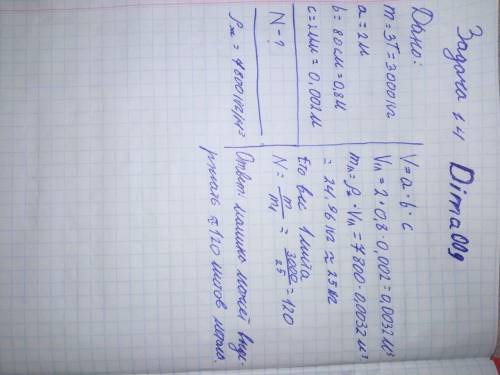 Задача 1.4 Dima009
Дано:
m = 3т = 3000 кг
a = 2 м
b = 80 см = 0,8 м
c = 2 мм = 0,002 м
N - ?
ρж = 7800 кг/м³
V = a · b · c
Vл = 2 · 0,8 · 0,002 = 0,0032 м³
mл = ρж · Vл = 7800 · 0,0032 м³
= 24,96 кг ≈ 25 кг
Это вес 1 листа
N = m/m₁ = 3000/25 = 120
Ответ: машина может выде-
ржать ≈ 120 листов метала.